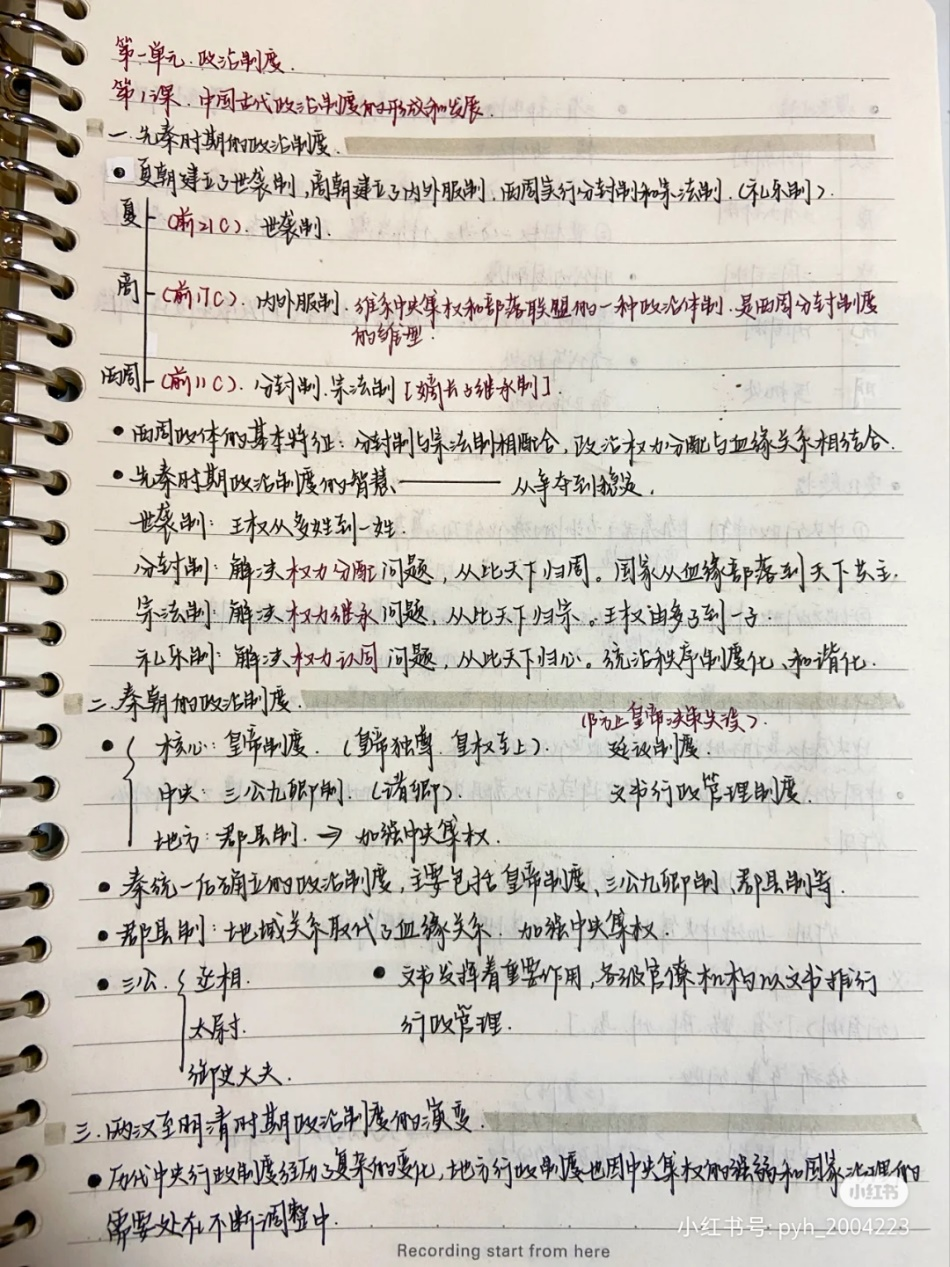 第一单元.政治制度.
第1课.中国古代政治制度的形成和发展.
一.先秦时期的政治制度.
• 夏朝建立了世袭制,商朝建立了内外服制,西周实行分封制和宗法制.(礼乐制).
夏 (前21C).世袭制.
商 (前17C).内外服制.维系中央集权和部落联盟的一种政治体制.是西周分封制度
的雏型.
西周 (前11C).分封制.宗法制[嫡长子继承制].
• 西周政体的基本特征:分封制与宗法制相配合,政治权力分配与血缘关系相结合.
• 先秦时期政治制度的智慧——从争夺到稳定.
世袭制:王权从多姓到一姓.
分封制:解决权力分配问题,从此天下归周。国家从血缘部落到天下共主.
宗法制:解决权力继承问题,从此天下归宗。王权由多子到一子.
礼乐制:解决权力认同问题,从此天下归心。统治秩序制度化、和谐化.
二.秦朝的政治制度.
(防止皇帝决策失误).
• 核心:皇帝制度.(皇帝独尊.皇权至上). 廷议制度.
中央:三公九卿制.(诸卿). 文书行政管理制度.
地方:郡县制.→加强中央集权.
• 秦统一后确立的政治制度,主要包括皇帝制度、三公九卿制、郡县制等.
• 郡县制:地域关系取代了血缘关系.加强中央集权.
• 三公.丞相. • 文书发挥着重要作用,各级官僚机构以文书推行
太尉. 行政管理.
御史大夫.
三.两汉至明清时期政治制度的演变.
• 历代中央行政制度经历了复杂的变化,地方行政制度也因中央集权的强弱和国家治理的
需要处在不断调整中.
小红书
小红书号: pyh_2004223
Recording start from here